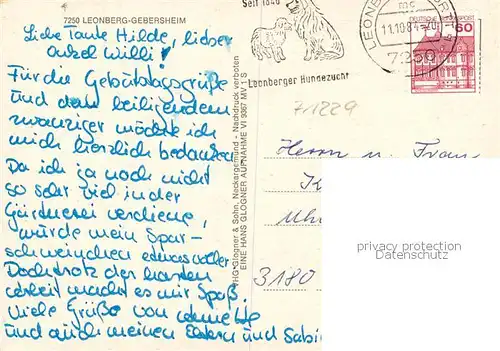 7250 LEONBERG-GEBERSHEIM
Liebe Tante Hilde, lieber
Onkel Willi!
Für die Geburtstagsgrüße
und dem beiliegendem
zwanziger möchte ich
mich herzlich bedanken
Da ich ja noch nicht
so sehr viel in der
Gärtnerei verdiene,
würde mein Spar-
schweinchen etwas voller
Doch trotz der harten
Arbeit macht es mir Spaß.
Viele Grüße von
und auch meinen Eltern und Sabi
HG Glogner & Sohn, Neckargemünd - Nachdruck verboten
EINE HANS GLOGNER AUFNAHME VI 9367 MV 1 S
Seit 1846
Leonberger Hundezucht
LEONBERG
11.10.84-20
7250
DEUTSCHE BUNDESPOST
60
71229
Herrn u. Frau
K
Uhr
3180
privacy protection
Datenschutz